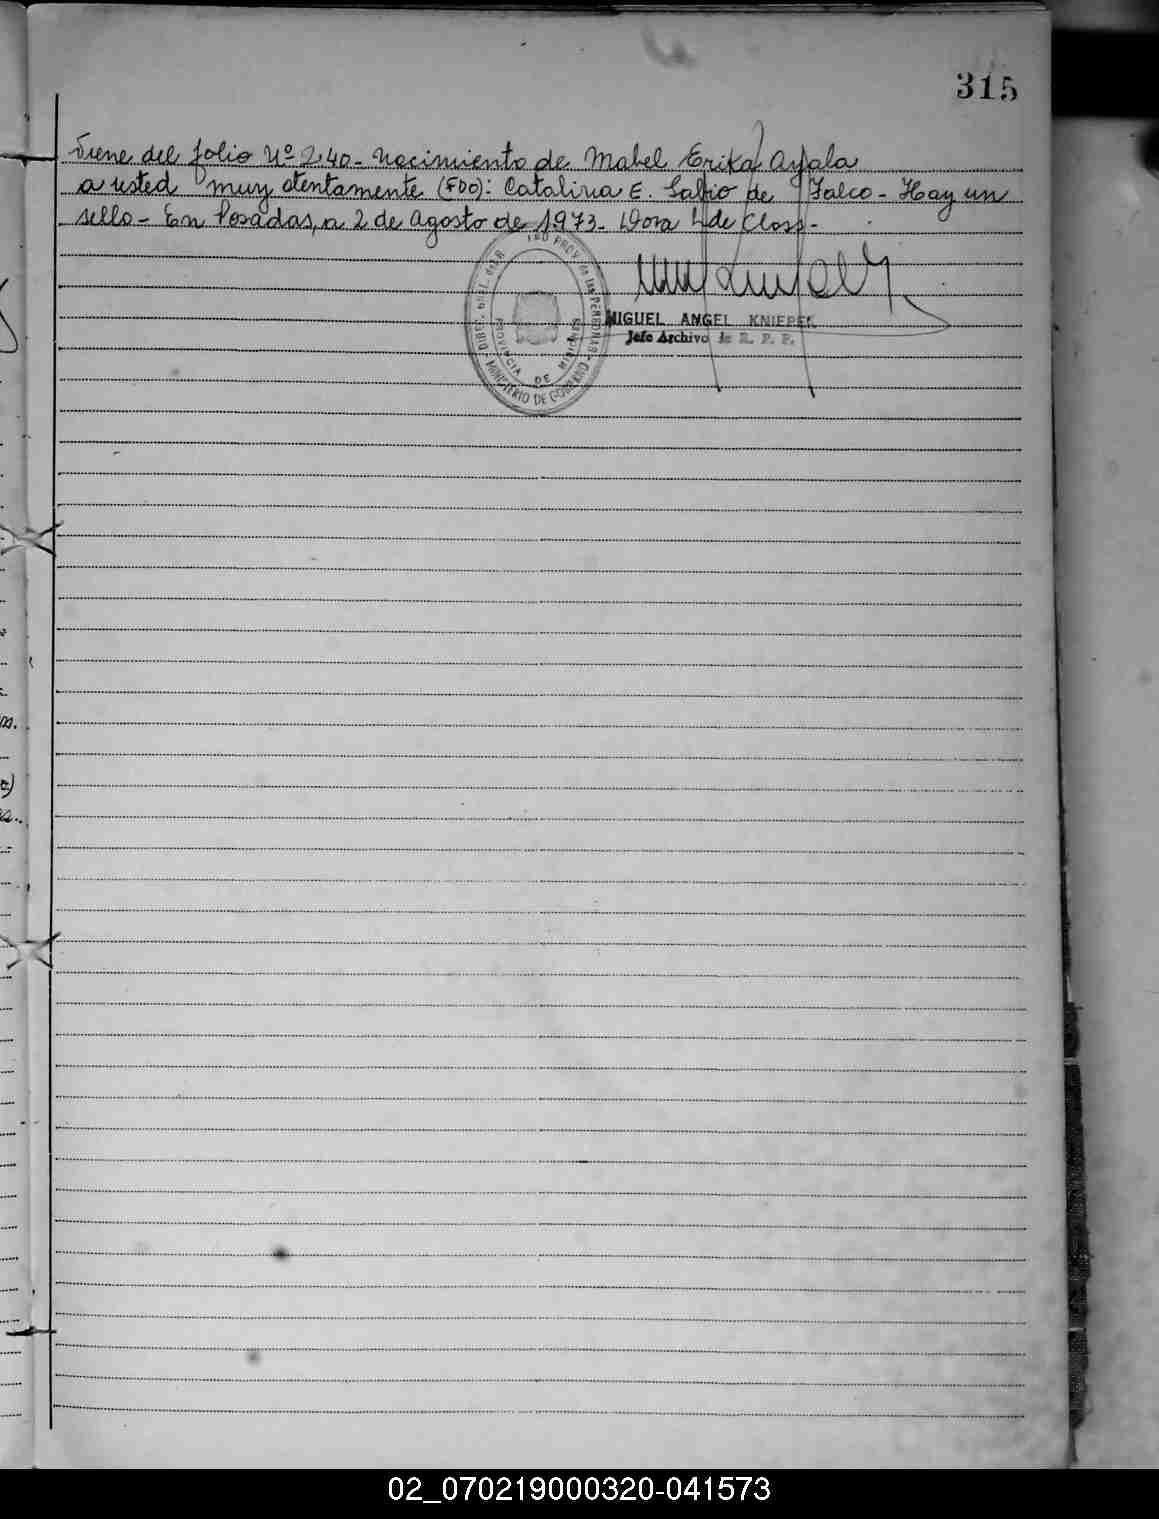 315
Viene del folio Nº 240 - Nacimiento de Mabel Erika Ayala
a usted muy atentamente (FDO): Catalina E. Safio de Falco - Hay un
sello - En Posadas, a 2 de Agosto de 1973 - Dora L de Closs -
MIGUEL ANGEL KNIEPEK
Jefe Archivo de R. P. P.
PROV de las PERSONAS - MINISTERIO DE GOBIERNO
PROVINCIA DE MISIONES
02_070219000320-041573